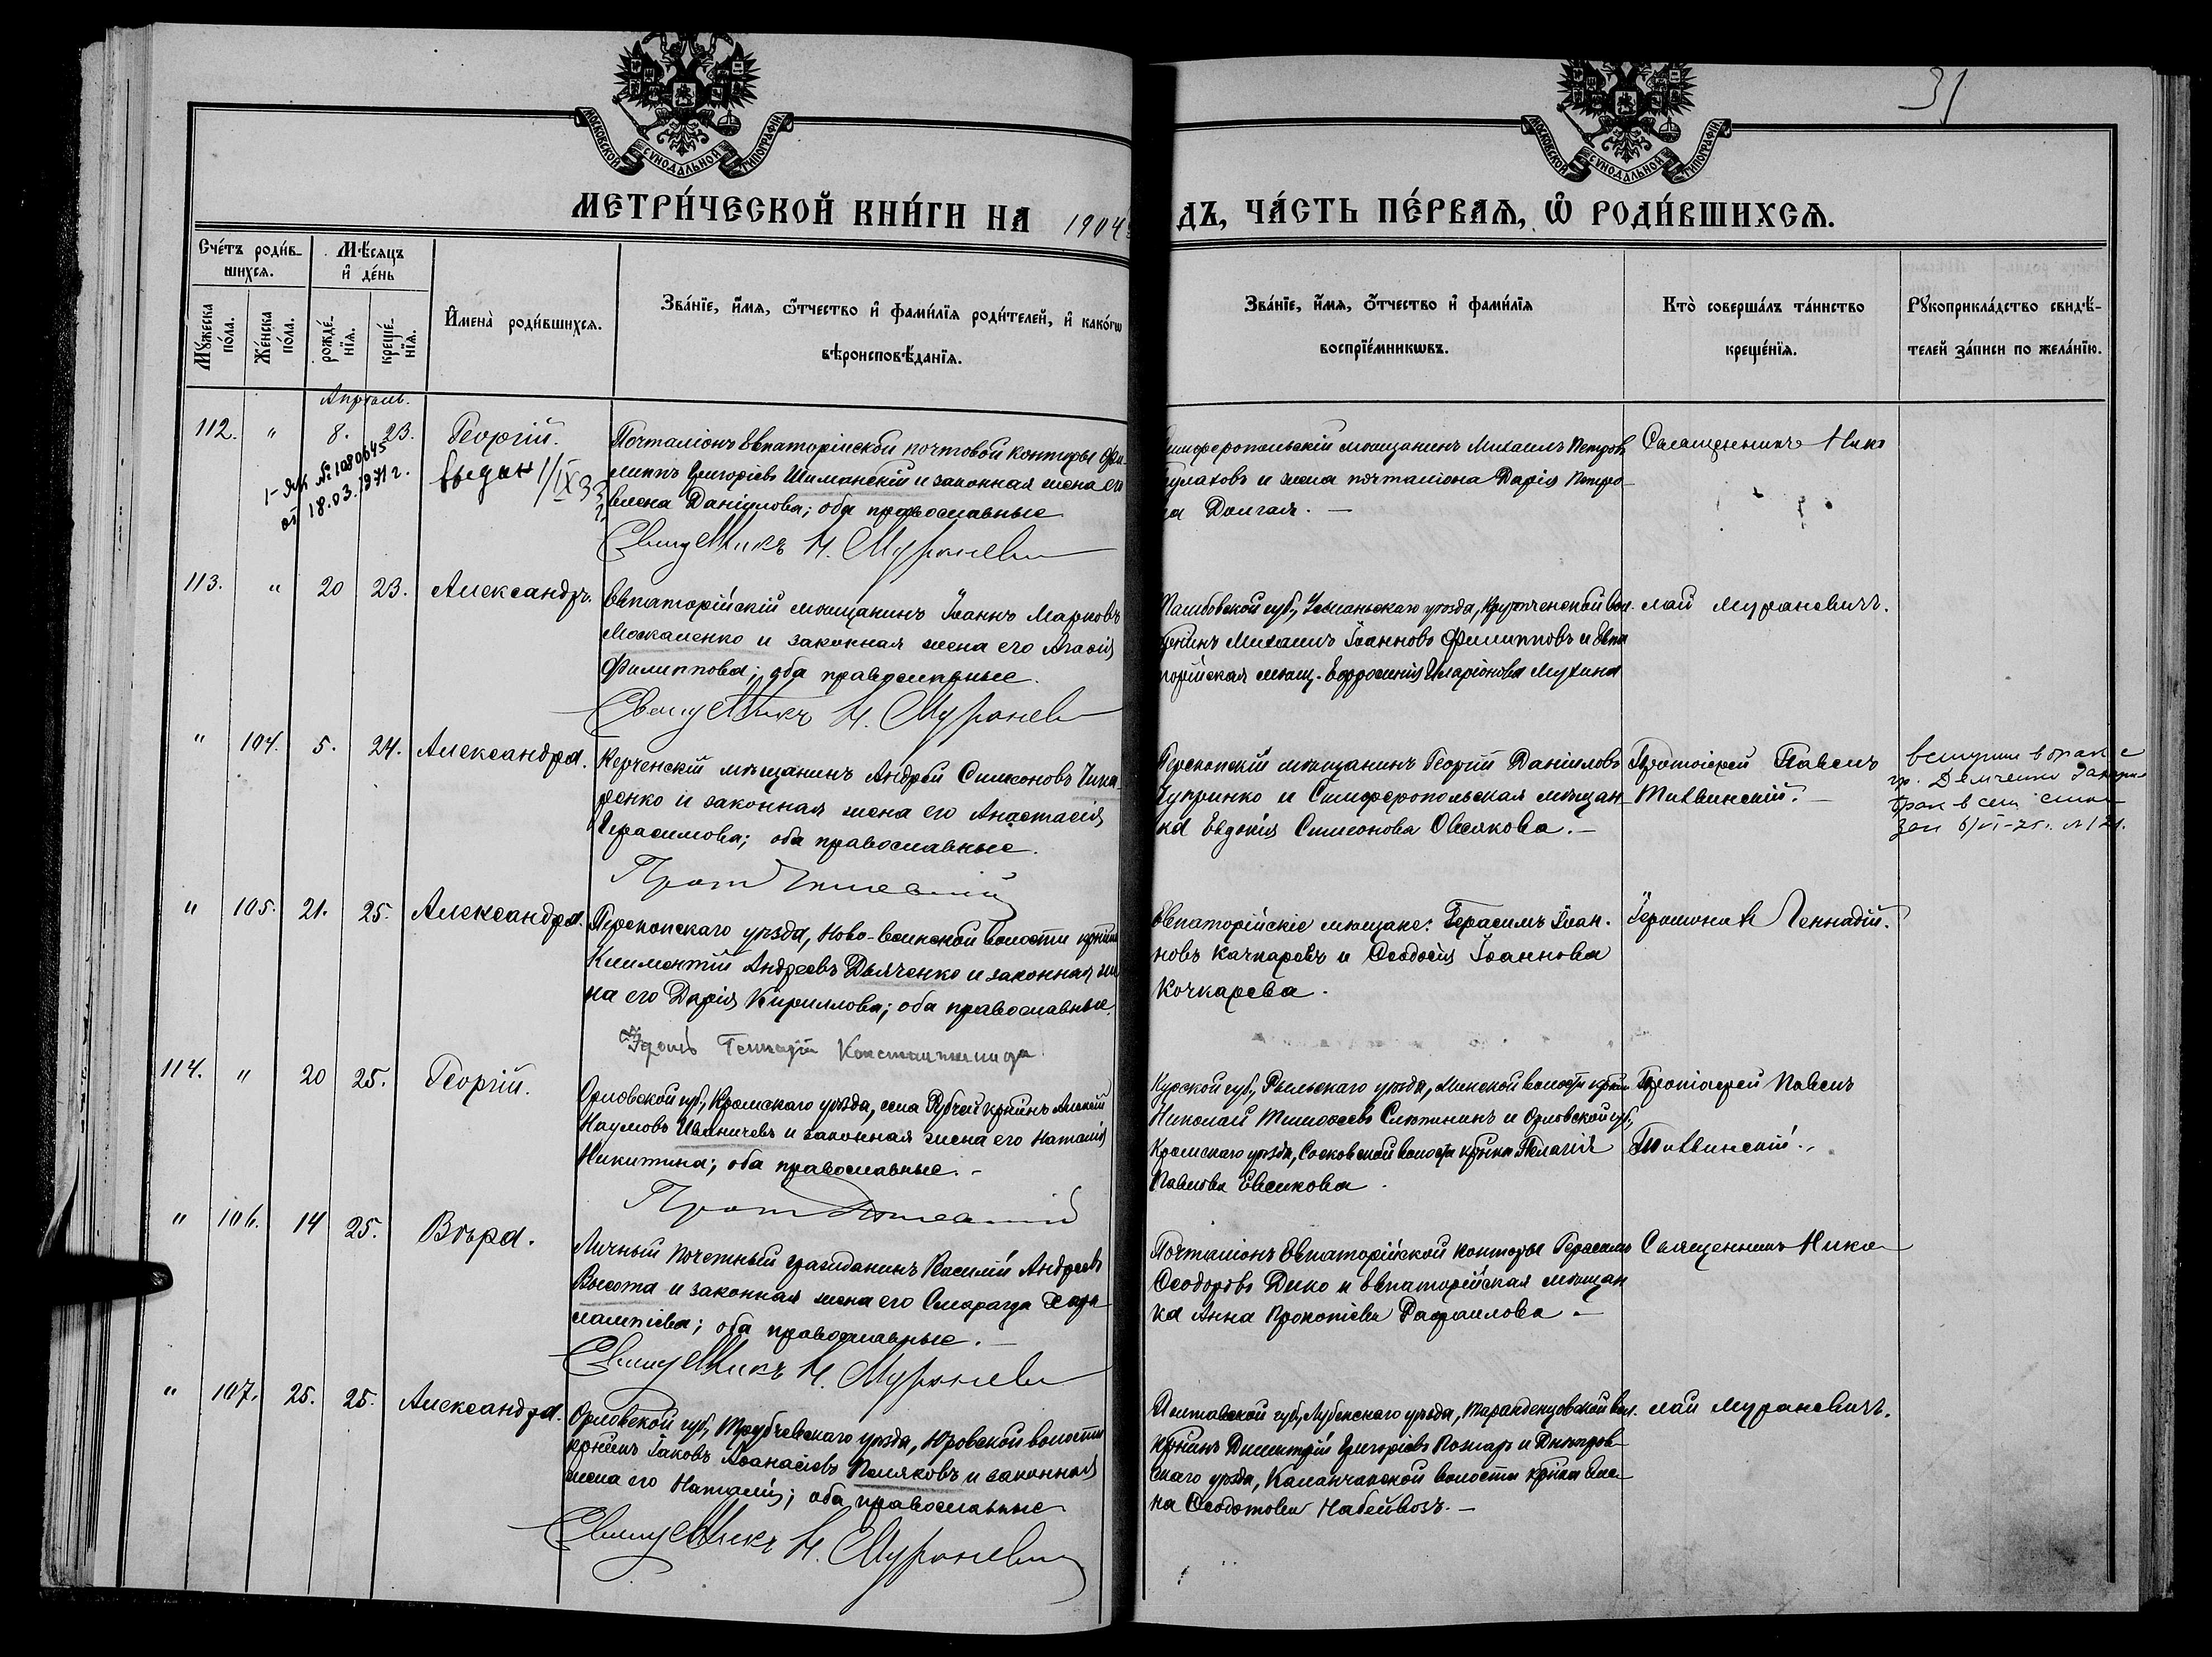 31
МОСКОВСКОЙ СѴНОДАЛЬНОЙ ТИПОГРАФІИ
МОСКОВСКОЙ СѴНОДАЛЬНОЙ ТИПОГРАФІИ
МЕТРИ́ЧЕСКОЙ КНИ́ГИ НА 1904
ДЪ, ЧА́СТЬ ПЕ́РВАѦ, Ѡ҆ РОДИ́ВШИХСѦ.
Сче́тъ роди́в-
шихсѧ.
Мѣ́сѧцъ
и҆ де́нь
Мꙋ́жеска
по́ла.
Же́нска
по́ла.
рожде́-
нїѧ.
креще́-
нїѧ.
И҆мена̀ роди́вшихсѧ.
Зва́нїе, и҆́мѧ, ѻ҆́тчество и҆ фами́лїѧ роди́телей, и҆ како́гѡ
вѣроисповѣ́данїѧ.
Зва́нїе, и҆́мѧ, ѻ҆́тчество и҆ фами́лїѧ
воспрїе́мникѡвъ.
Кто̀ соверша́лъ та́инство
креще́нїѧ.
Рꙋкоприкла́дство свидѣ́-
телей за́писи по жела́нїю.
Апрѣль.
112. " 8. 23. Георгій.
выдан 1/IX 33
1-ЯК № 1080645
от 18.03.1971 г.
Почталіонъ Евпаторійской почтовой конторы Фи-
липпъ Григорьевъ Шиманскій и законная жена его
Елена Даніилова; оба православные
Священникъ Н. Мураневи
Симферопольскій мѣщанинъ Михаилъ Петров
Булаховъ и жена почталіона Дарія Петро-
ва Долгая. —
Священникъ Нико
113. " 20 23. Александръ.
Евпаторійскій мѣщанинъ Іоаннъ Марковъ
Москаленко и законная жена его Агафія
Филиппова; оба православные.
Священникъ Н. Муранев
Тамбовской губ., Усманьскаго уѣзда, вол.
кр-нинъ Михаилъ Іоанновъ Филипповъ и Евпа
торійская мѣщ. Евфросинія Иларіонова Мухина
лай Мураневичъ.
" 104. 5. 24. Александра.
Керченскій мѣщанинъ Андрей Симоновъ Чика-
ренко и законная жена его Анастасія
Герасимова; оба православные.
Прот
Перекопскій мѣщанинъ Георгій Даніиловъ
Чупринко и Симферопольская мѣщан-
ка Евдокія Симеонова Овсякова. —
Протоіерей Павелъ
Тихвинскій. —
вступила в брак с
гр. Демченко
брак в
зап 6/VI-25г. №121.
" 105. 21. 25. Александра.
Перекопскаго уѣзда, Ново-воинской волости кр-нинъ
Климентій Андреевъ Дьяченко и законная же
на его Дарія Кириллова; оба православные.
Іером Геннадій
Евпаторійскіе мѣщане: Герасимъ Іоан-
новъ Качкаревъ и Ѳеодосія Іоаннова
Кочкарева.
Іеромонахъ Геннадій.
114. " 20 25. Георгій.
Орловской губ., Кромскаго уѣзда, села кр-нинъ Алексій
Наумовъ Иваничевъ и законная жена его Наталія
Никитина; оба православные. -
Прот
Курской губ., Рыльскаго уѣзда, волости кр-нинъ
Николай Тимоѳеевъ и Орловской губ.,
Кромскаго уѣзда, Сосковской волости кр-нка Пелагія
Павлова Евсикова.
Протоіерей Павелъ
Тихвинскій.
" 106. 14 25. Вѣра.
Личный почетный гражданинъ Василій Андреевъ
Высота и законная жена его Смарагда Хара
лампіева; оба православные. —
Священникъ Н. Мураневи
Почталіонъ Евпаторійской конторы Герасимъ
Ѳеодоровъ Дико и Евпаторійская мѣщан
ка Анна Прокопіева Рафаилова —
Священникъ Нико
" 107. 25. 25. Александра.
Орловской губ., Трубчевскаго уѣзда, Юровской волости
кр-нинъ Іаковъ Аѳанасіевъ Поляковъ и законная
жена его Наталія; оба православные
Священникъ Н. Мураневи
Полтавской губ., Лубенскаго уѣзда, Тарандинцовской вол.
кр-нинъ Димитрій Григоріевъ Пожаръ и Днѣпров-
скаго уѣзда, Каланчакской волости кр-нка Еле-
на Ѳеодотова Набейвозъ. —
лай Мураневичъ.